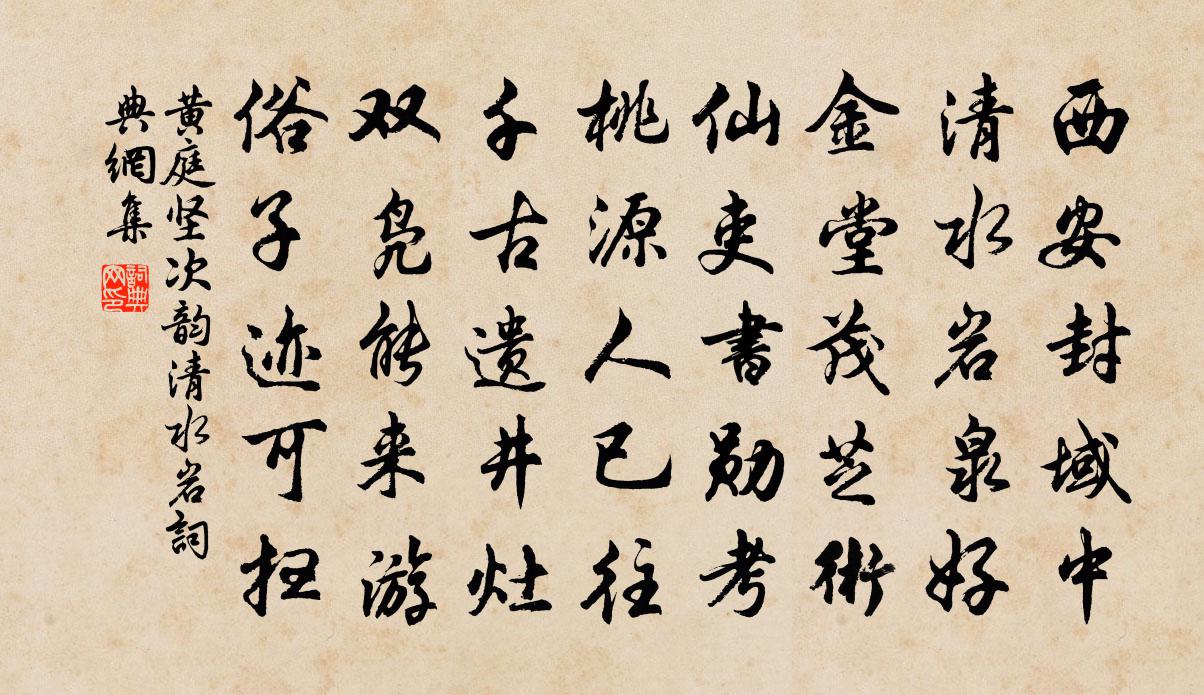 西安封域中
清水岩泉好
金堂茂芝術
仙吏書勋考
桃源人已往
千古遗井灶
双凫能来游
俗子迹可扫
黄庭坚次韵清水岩詞
典網集
詞典
网印